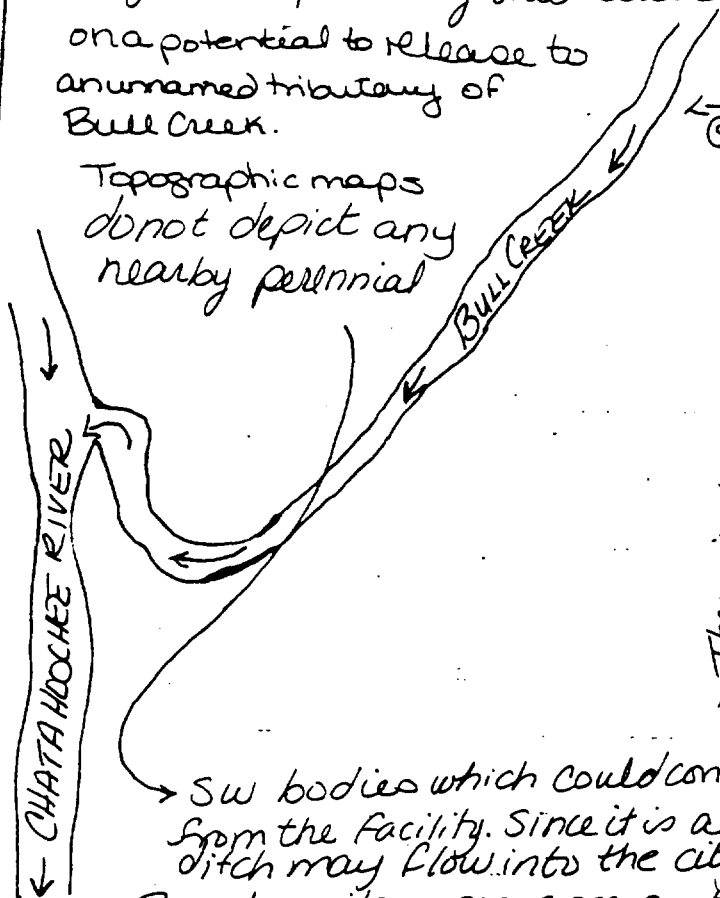 on a potential to release to
an unnamed tributary of
Bull Creek.
Topographic maps
do not depict any
nearby perennial
BULL CREEK
CHATAHOOCHEE RIVER
SW bodies which could con
from the facility. Since it is a
ditch may flow into the cit